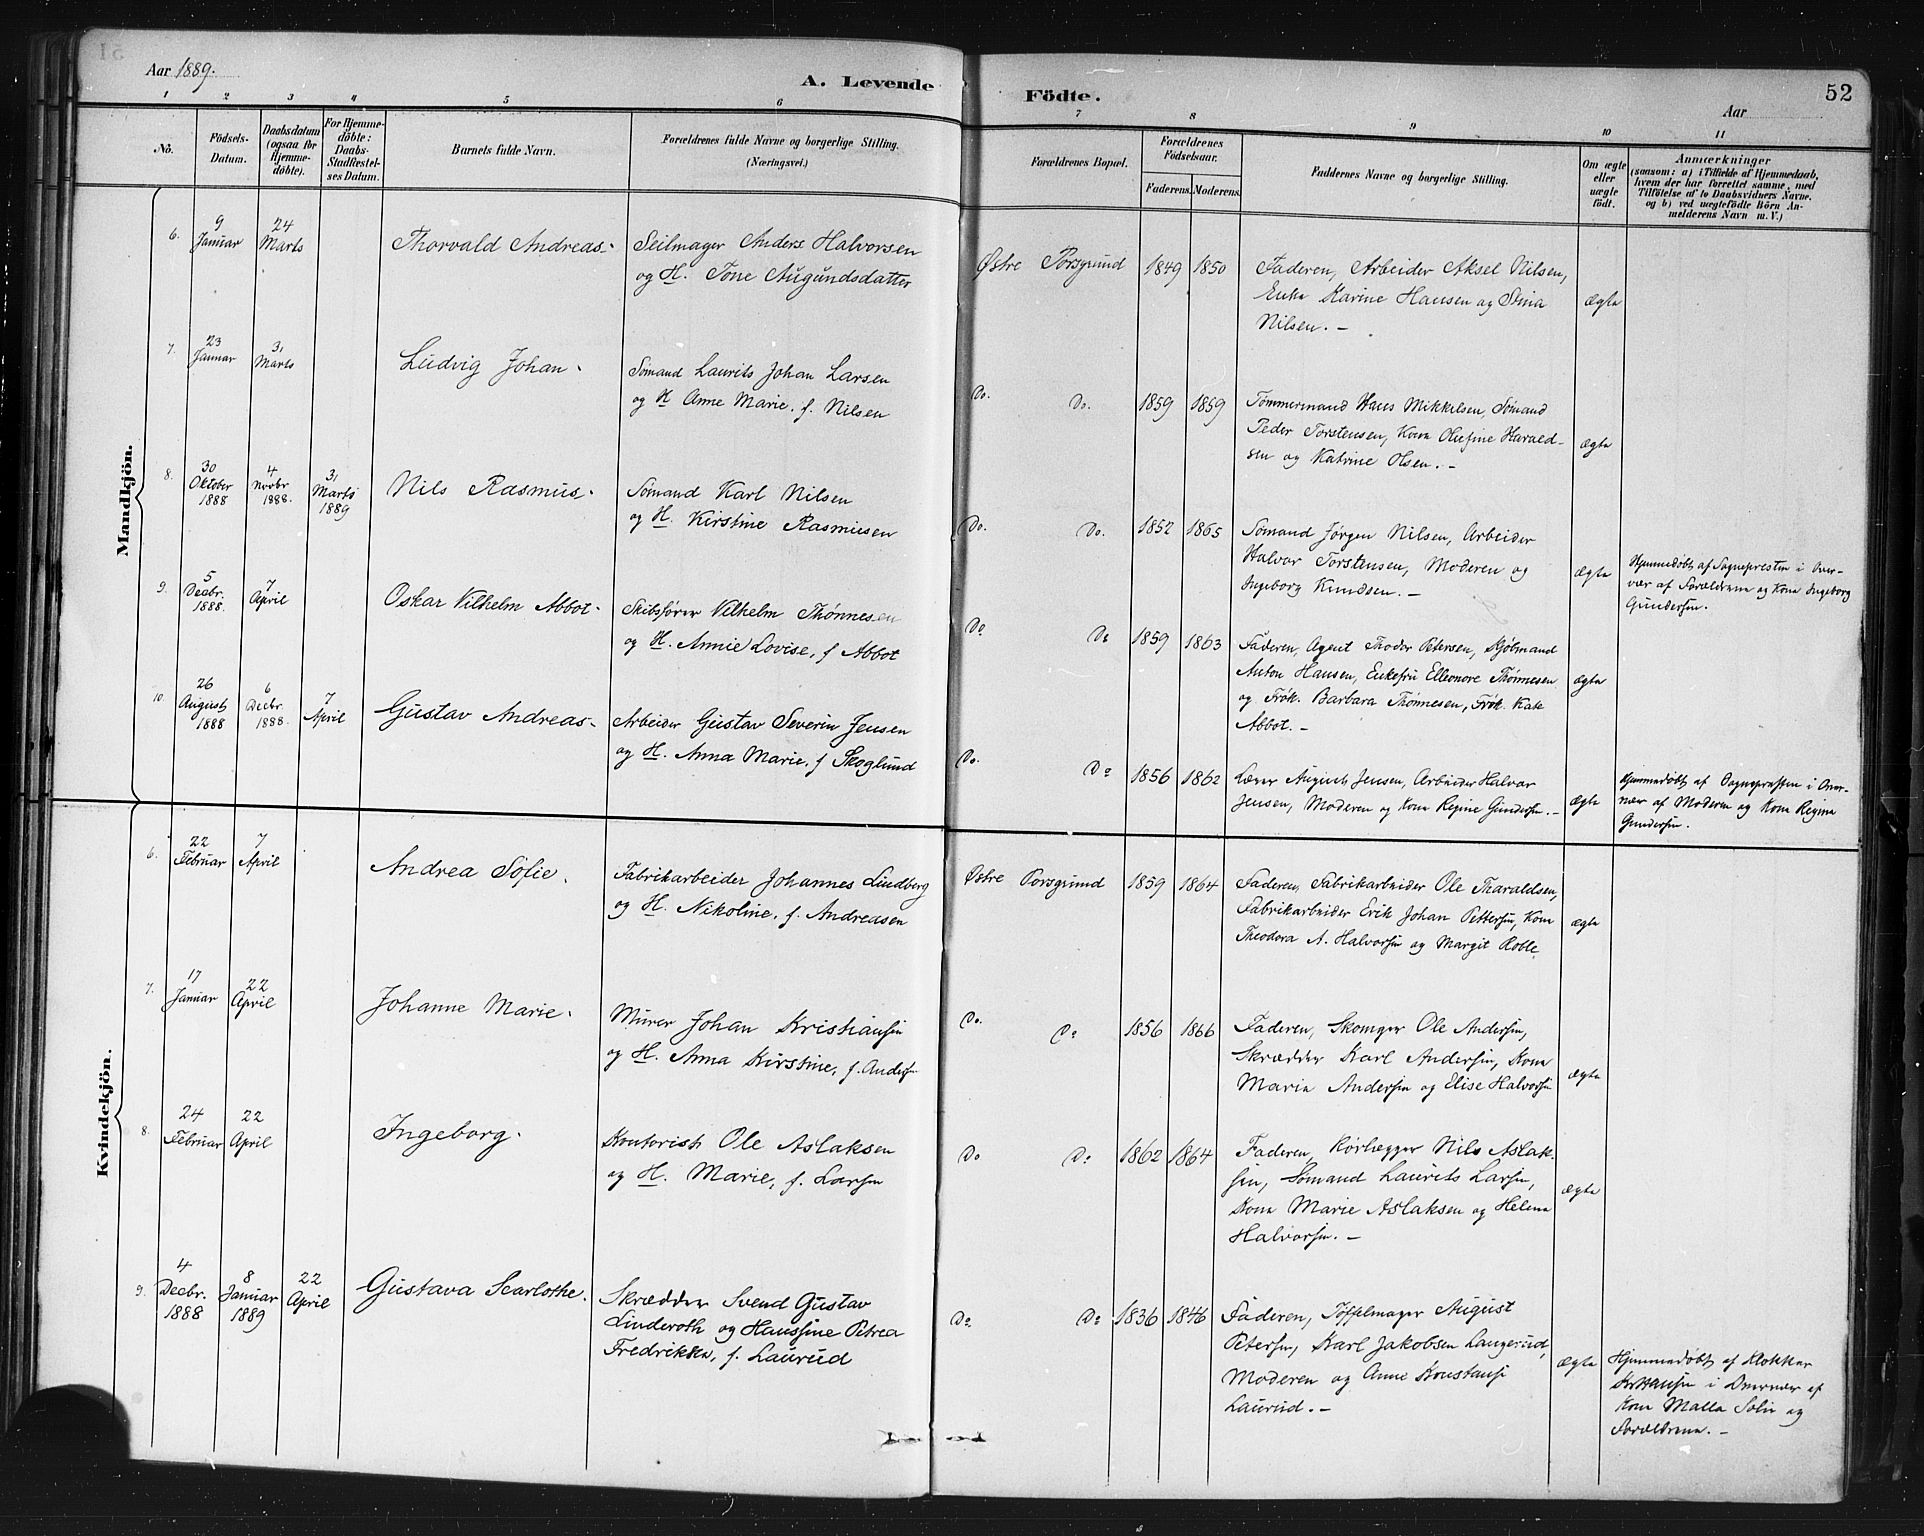 Aar 1889.
A. Levende
Födte.
Aar
52
1 2 3 4 5 6 7 8 9 10 11
No.
Födsels-
Datum.
Daabsdatum
(ogsaa for
Hjemme-
døbte).
For Hjemme-
døbte:
Daabs-
Stadfæstel-
ses Datum.
Barnets fulde Navn.
Forældrenes fulde Navne og borgerlige Stilling.
(Næringsvei.)
Forældrenes Bopæl.
Forældrenes
Födselsaar.
Faderens. Moderens.
Faddernes Navne og borgerlige Stilling.
Om ægte
eller
uægte
født.
Anmærkninger
(saasom: a) i Tilfælde af Hjemmedaab,
hvem der har forrettet samme, med
Tilføielse af to Daabsvidners Navne,
og b) ved uægtefødte Börn An-
melderens Navn m. V.)
Mandkjön.
6.
9
Januar
24
Marts
Thorvald Andreas.
Seilmager Anders Halvorsen
og H. Tone Augundsdatter
Østre Porsgrund
1849 1850
Faderen, Arbeider Aksel Nilsen,
Enke Karine Hansen og Stina
Nilsen.
ægte
7.
23
Januar
31
Marts
Ludvig Johan
Sømand Laurits Johan Larsen
og H Anne Marie, f. Nilsen
Do. Do.
1859 1859
Tømmermand Hans Mikkelsen, Sømand
Peder Torstensen, Kona Olufine Harald-
sen og Katrine Olsen.
ægte
8.
30
Oktober
1888
4
Novbr
1888.
31
Marts
1889
Nils Rasmus.
Sømand Karl Nilsen
og H. Kirstine Rasmusen
Do. Do.
1852 1865
Sømand Jørgen Nilsen, Arbeider
Halvor Torstensen, Moderen og
Ingeborg Knudsen.
ægte
Hjemmedøbt af Sognepresten i Over-
vær af Forældrene og Kona Ingeborg
Gundersen.
9.
5
Decbr.
1888.
7
April
Oskar Vilhelm Abbot.
Skibsfører Vilhelm Thønnesen
og H. Annie Lovise, f Abbot
Do Do
1859 1863
Faderen, Agent Thodor Petersen, Sjømand
Anton Hansen, Enkefru Elleonore Thønnesen
og Frøk. Barbara Thønnesen, Frøk. Kate
Abbot.
ægte
10.
26
August
1888
6
Decbr.
1888.
7
April
Gustav Andreas.
Arbeider Gustav Severin Jensen
og H. Anna Marie, f Skoglund
Do. Do
1856 1862
August Jensen, Arbeider Halvar
Jensen, Moderen og Kona Regine Gundersen.
ægte
Hjemmedøbt af Sognepresten i Over-
vær af Moderen og Kona Regine
Gundersen.
Kvindekjön.
6.
22
Februar
7
April
Andrea Sofie.
Fabrikarbeider Johannes Lindberg
og H. Nikoline, f. Andreasen
Østre Porsgrund
1859 1864
Faderen, Fabrikarbeider Ole Tharaldsen,
Fabrikarbeider Erik Johan Pettersen, Kona
Theodora A. Halvorsen og Margit Roble
ægte
7.
17
Januar
22
April
Johanne Marie.
Murer Johan Kristiansen
og H. Anna Kirstine, f. Andersen
Do. Do
1856 1866
Faderen, Skomger Ole Andersen,
Skrædder Karl Andersen, Kona
Maria Andersen og Elise Halvorsen
ægte
8.
24
Februar
22
April
Ingeborg.
Kontorist Ole Aslaksen
og H. Marie, f. Larsen
Do Do
1862 1864
Faderen, Rørlægger Nils Aslak-
sen, Sømand Laurits Larsen,
Kona Marie Aslaksen og Helena
Halvorsen.
ægte
9.
4
Decbr.
1888
8
Januar
1889
22
April
Gustava Scarlothe.
Skrædder Svend Gustav
Linderoth og Hanssine Petrea
Fredrikka, f. Laurud
Do. Do
1836 1846
Faderen, Tøffelmager August
Petersen, Karl Jakobsen Langerud,
Moderen og Anne Konstanse
Laurud.
ægte
Hjemmedøbt af Klokker
i Overvær af
Kona Malla og
Forældrene.